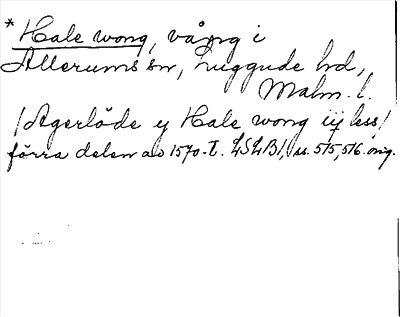 * Hale wong, vång i
Allerums sn, Luggude hd,
Malm. l.
/Agerlöde y Hale wong iij less/
förra delen av 1570-t. LSLB1, ss. 515, 516. orig.